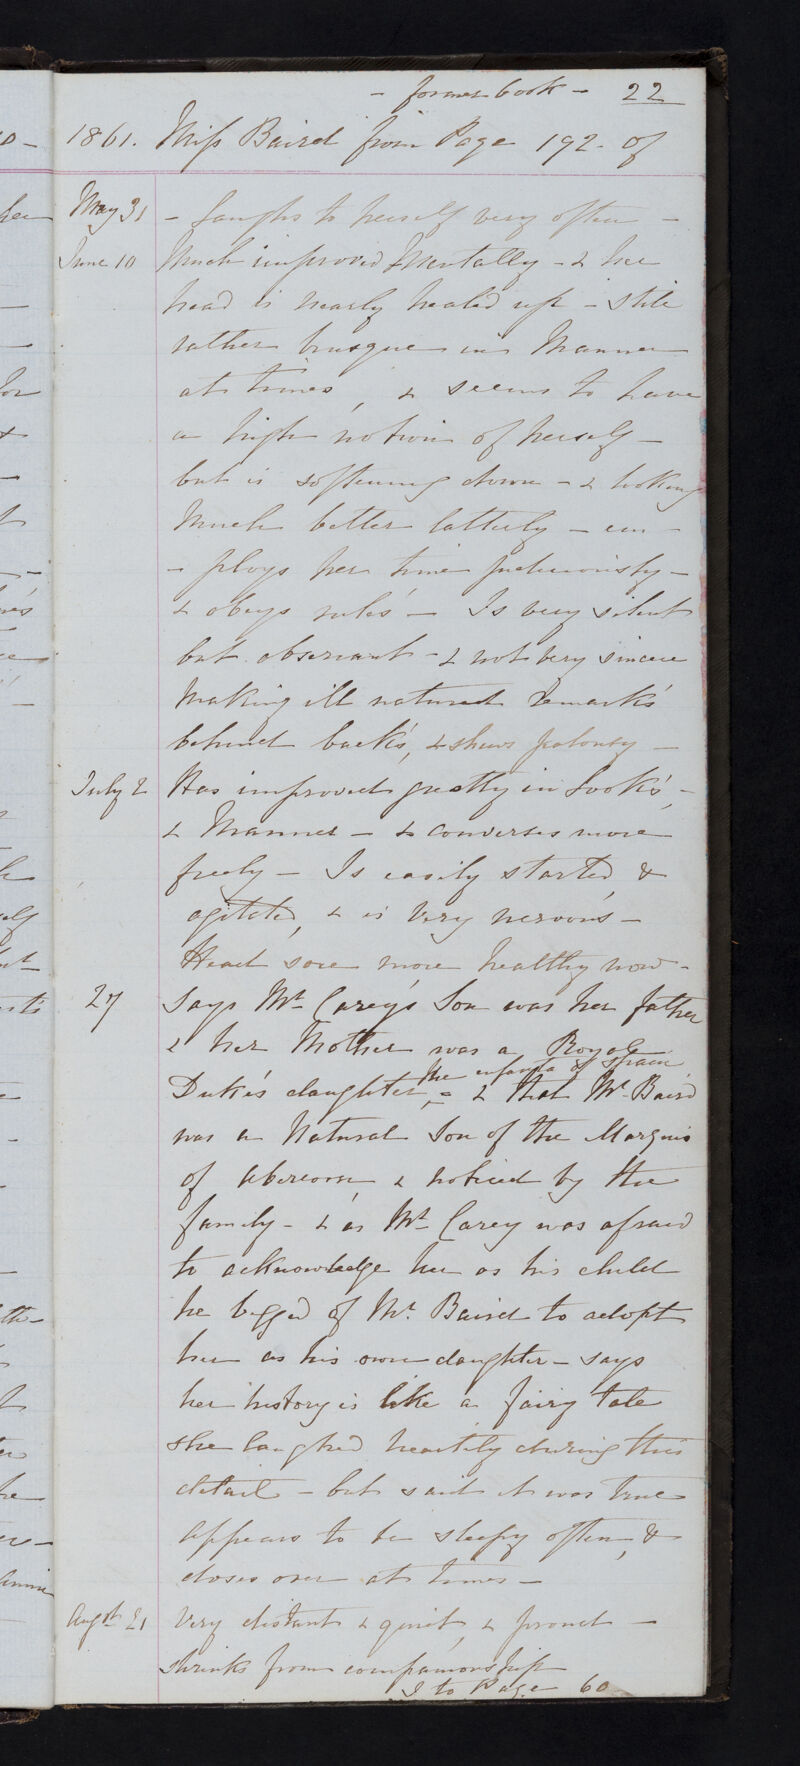 - former book - 22
1861. Miss Baird from Page 192 - of
May 31 - laughs to herself very often -
June 10 Much improved Mentally - & her
head is nearly healed up - still
rather brusque in Manner
at times, & seems to have
a high notion of herself -
but is softening down - & looking
Much better latterly - em -
- ploys her time judiciously -
& obeys rules - Is very silent
but observant - & not very sincere
Making ill natured remarks
behind backs, & shews jealousy -
July 2 Has improved greatly in looks, -
& Manner - & converses more
freely - Is easily started, &
agitated, & is Very nervous -
Head sore more healthy now -
27 Says Mr. Carey's Son was her father
& her Mother was a Royal
the infanta of Spain
Duke's daughter - & that Mr. Baird
was a Natural Son of the Marquis
of abercorn, & noticed by the
family - & as Mr. Carey was afraid
to acknowledge her as his child
he begged of Mr. Baird to adopt
her as his own daughter - says
her history is like a fairy tale
she laughed heartily during this
detail - but said it was true
appears to be sleepy often, &
doses over at times -
Augst 21 Very distant & quiet, & proud -
shrinks from companionship
to Page 60